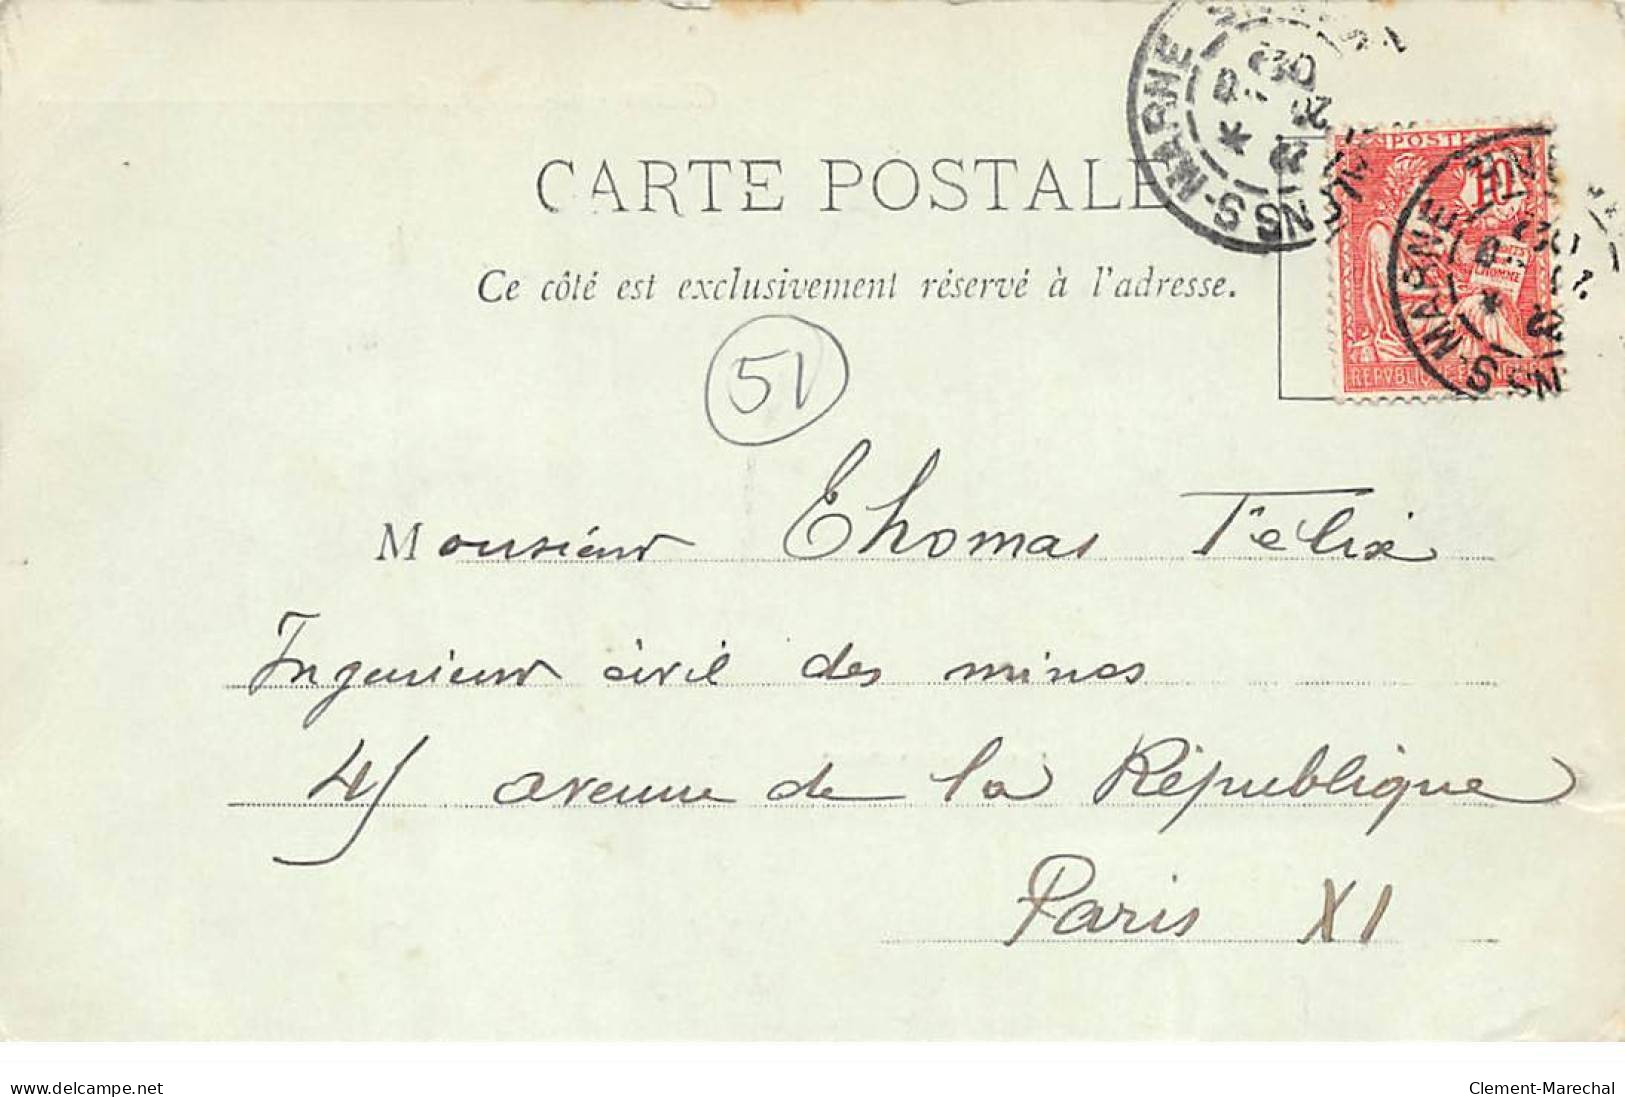 CARTE POSTALE
Ce côté est exclusivement réservé à l'adresse.
POSTES
10
DROITS
L'HOMME
S-MARNE
S-MARNE
51
Monsieur Thomas Félix
Ingénieur civil des mines
45 avenue de la République
Paris XI
www.delcampe.net
Clement-Marechal